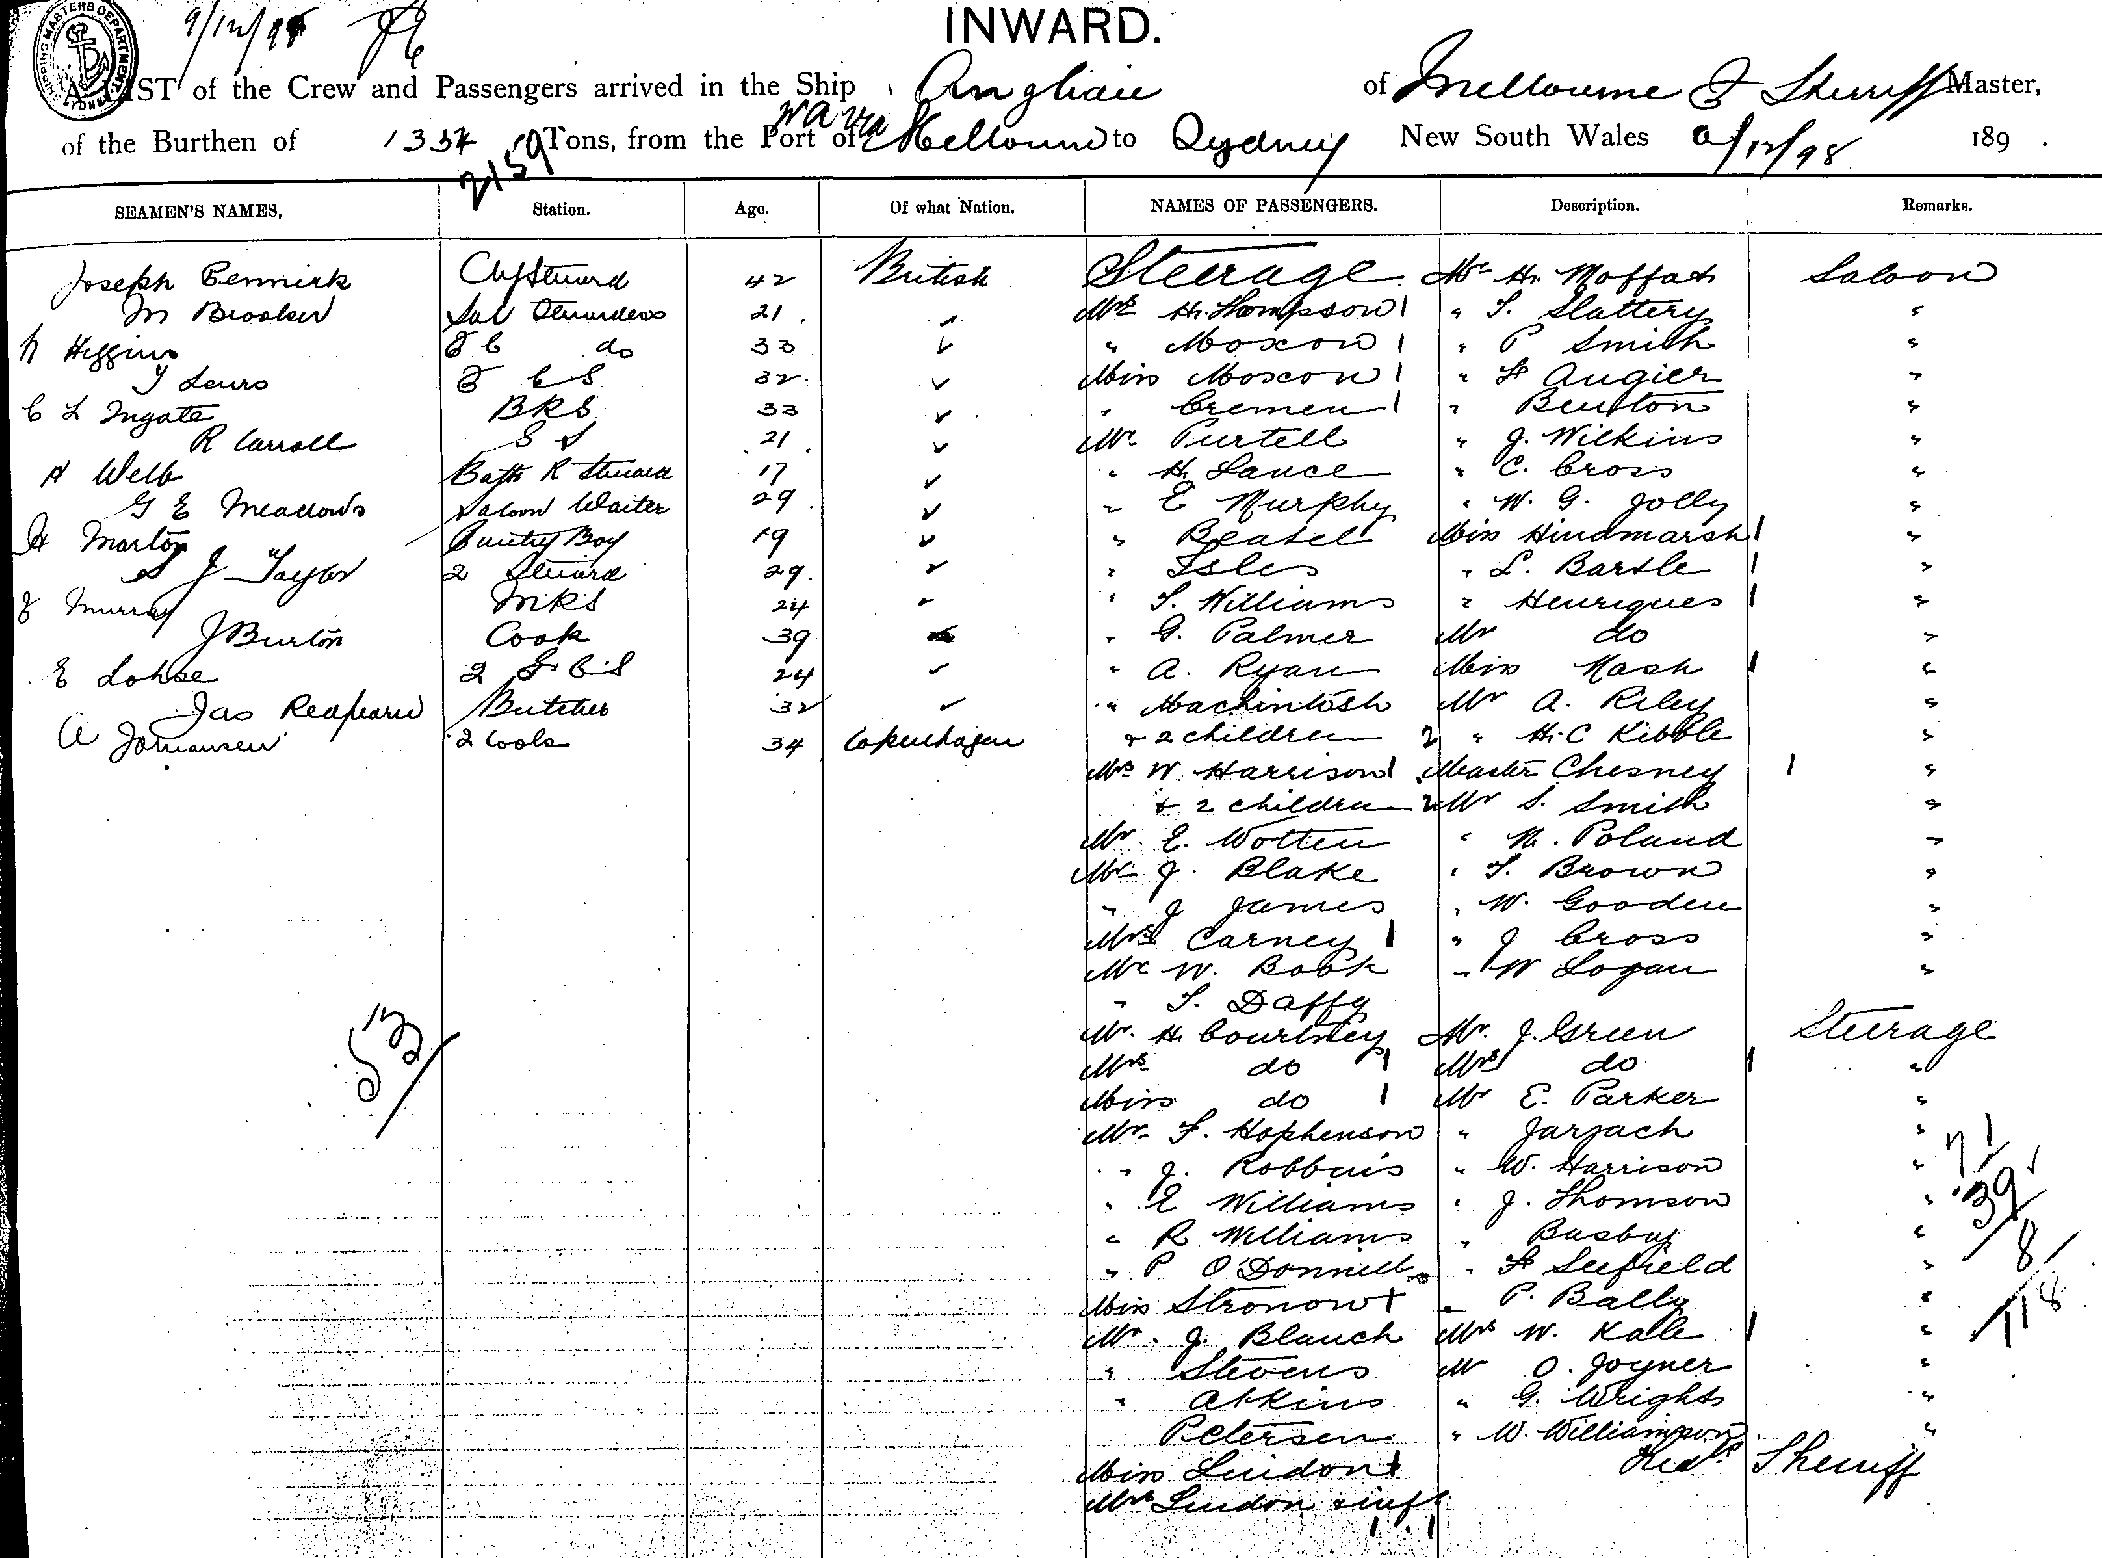 9/12/98
INWARD.
A LIST of the Crew and Passengers arrived in the Ship Anglian of Melbourne F Sherriff Master,
of the Burthen of 1334 Tons, from the Port of Melbourne to Sydney New South Wales 9/12/98 189 .
2159
W A via
SEAMEN'S NAMES, Station. Age. Of what Nation. NAMES OF PASSENGERS. Description. Remarks.
Joseph Pennick Chf Steward 42 British Steerage Mr H. Moffat Saloon
M Brooker Sal Stewardess 21 " Mrs H. Thompson 1 " T. Slattery "
N Higgins F C do 33 " " Moxcon 1 " P Smith "
T Lewis F C S 32 " Miss Moxcon 1 " F Augier "
C L Ingate BRS 33 " " Cremen 1 " Benston "
R Carroll S S 21 " Mr Purtell " J. Wilkins "
A Webb Bath R Steward 17 " " H. Lance " C. Cross "
G E Meadows Saloon Waiter 29 " " E Murphy " W. G. Jolly "
H Morton Pantry Boy 19 " " Beasel Miss Hindmarsh 1 "
S J Taylor 2 Steward 29 " " Isles " L. Bartle 1 "
F Murray MRS 24 " " S. Williams " Henriques 1 "
J Burton Cook 39 " " G. Palmer Mr do "
E Lohse 2 F C S 24 " " A. Ryan Miss Nash 1 "
Jas Redfearn Butcher 32 " " Machintosh Mr A. Riley "
A Johansen 2 Cook 34 Copenhagen + 2 children 2 " H. C Kibble "
Mrs W. Harrison 1 Master Chesney 1 "
+ 2 children 2 Mr S. Smith "
Mr E. Wotten " N. Poland "
Mr J. Blake " T. Brown "
" J James " W. Gooden "
Mrs Carney 1 " J Cross "
Mr W. Book " W Logan "
" T. Daffy
Mr. H. Courtney Mr. J. Green Steerage
Mrs do 1 Mrs do 1 "
Miss do 1 Mr E. Parker "
Mr. F. Hophenson " Jarzach "
" J. Robbins " W. Harrison "
" E Williams " J. Thomson "
" R Williams " Busby "
" P O'Donnell " F Seefield "
Miss Stronow 1 " P. Bally "
Mr. J. Blanch Mrs W. Kale 1 "
" Stevens Mr O. Joyner "
" Atkins " G. Wright "
Petersen " W. Williamson "
Miss Lindon 1 Fred Sherriff
Mrs Lindon + inft
1 1
53
71
39
8
118